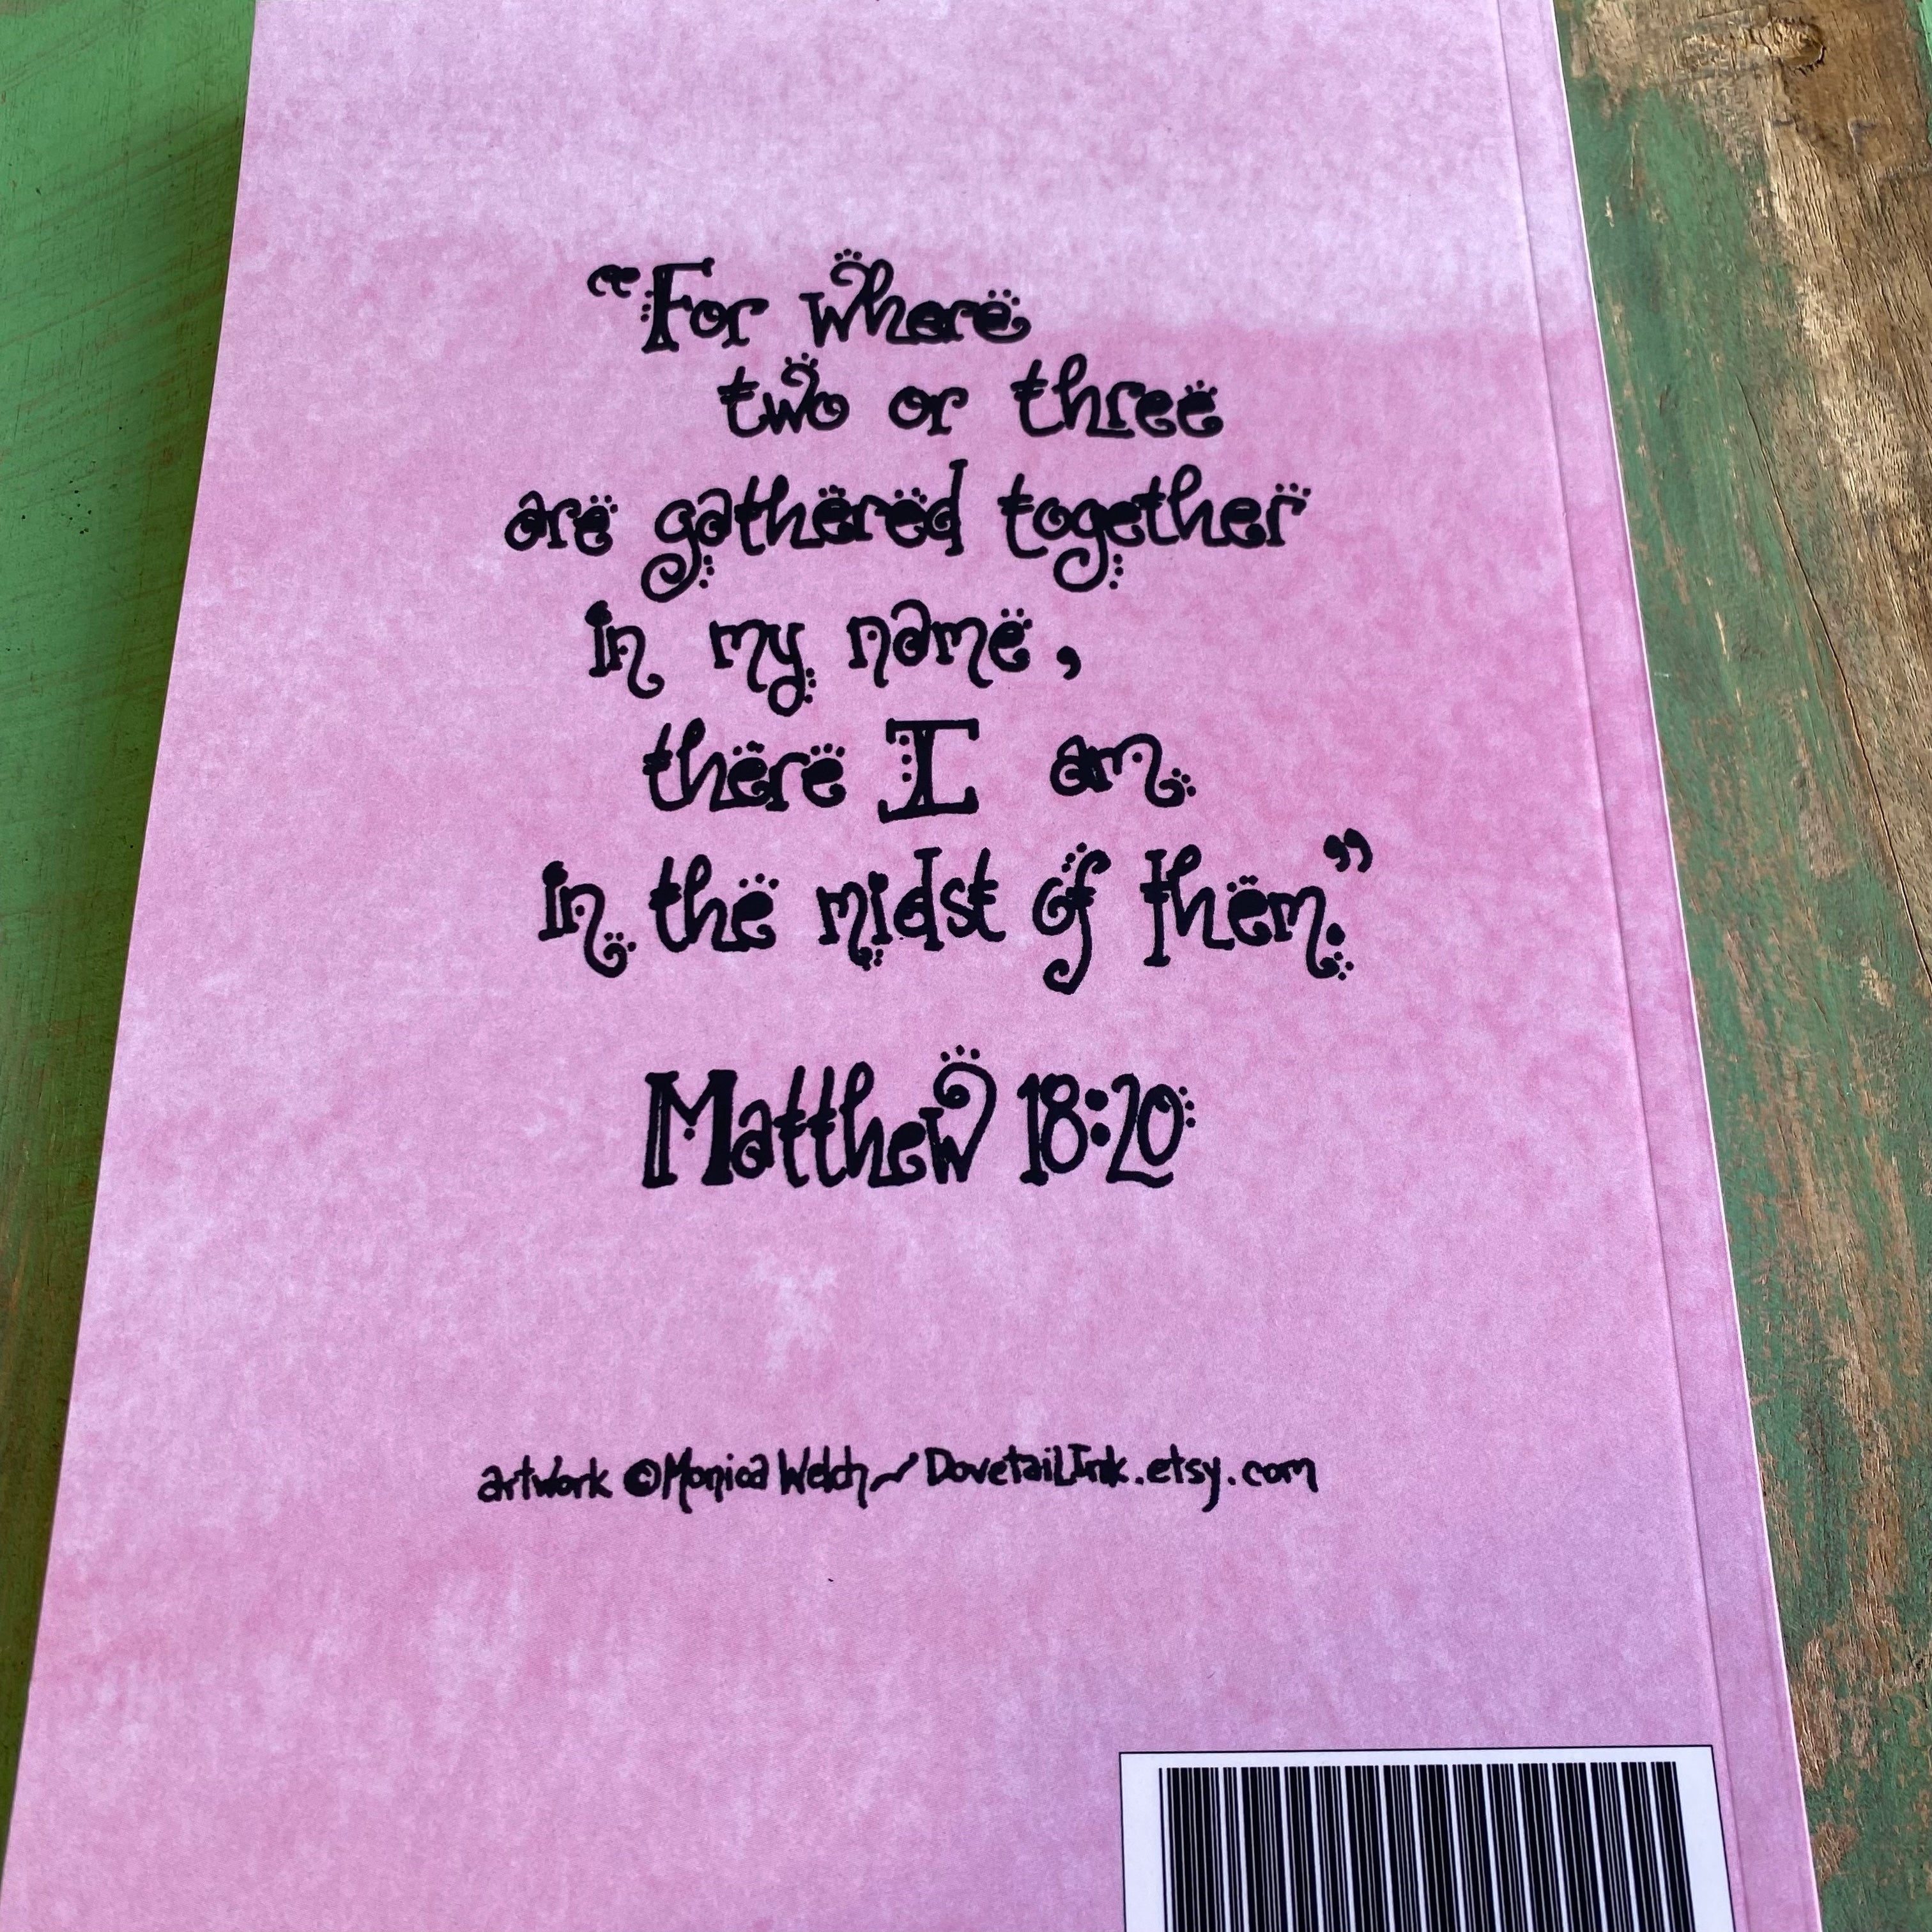 “For where
two or three
are gathered together
in my name,
there I am
in the midst of them.”
Matthew 18:20
artwork ©Monica Welch~DovetailInk.etsy.com